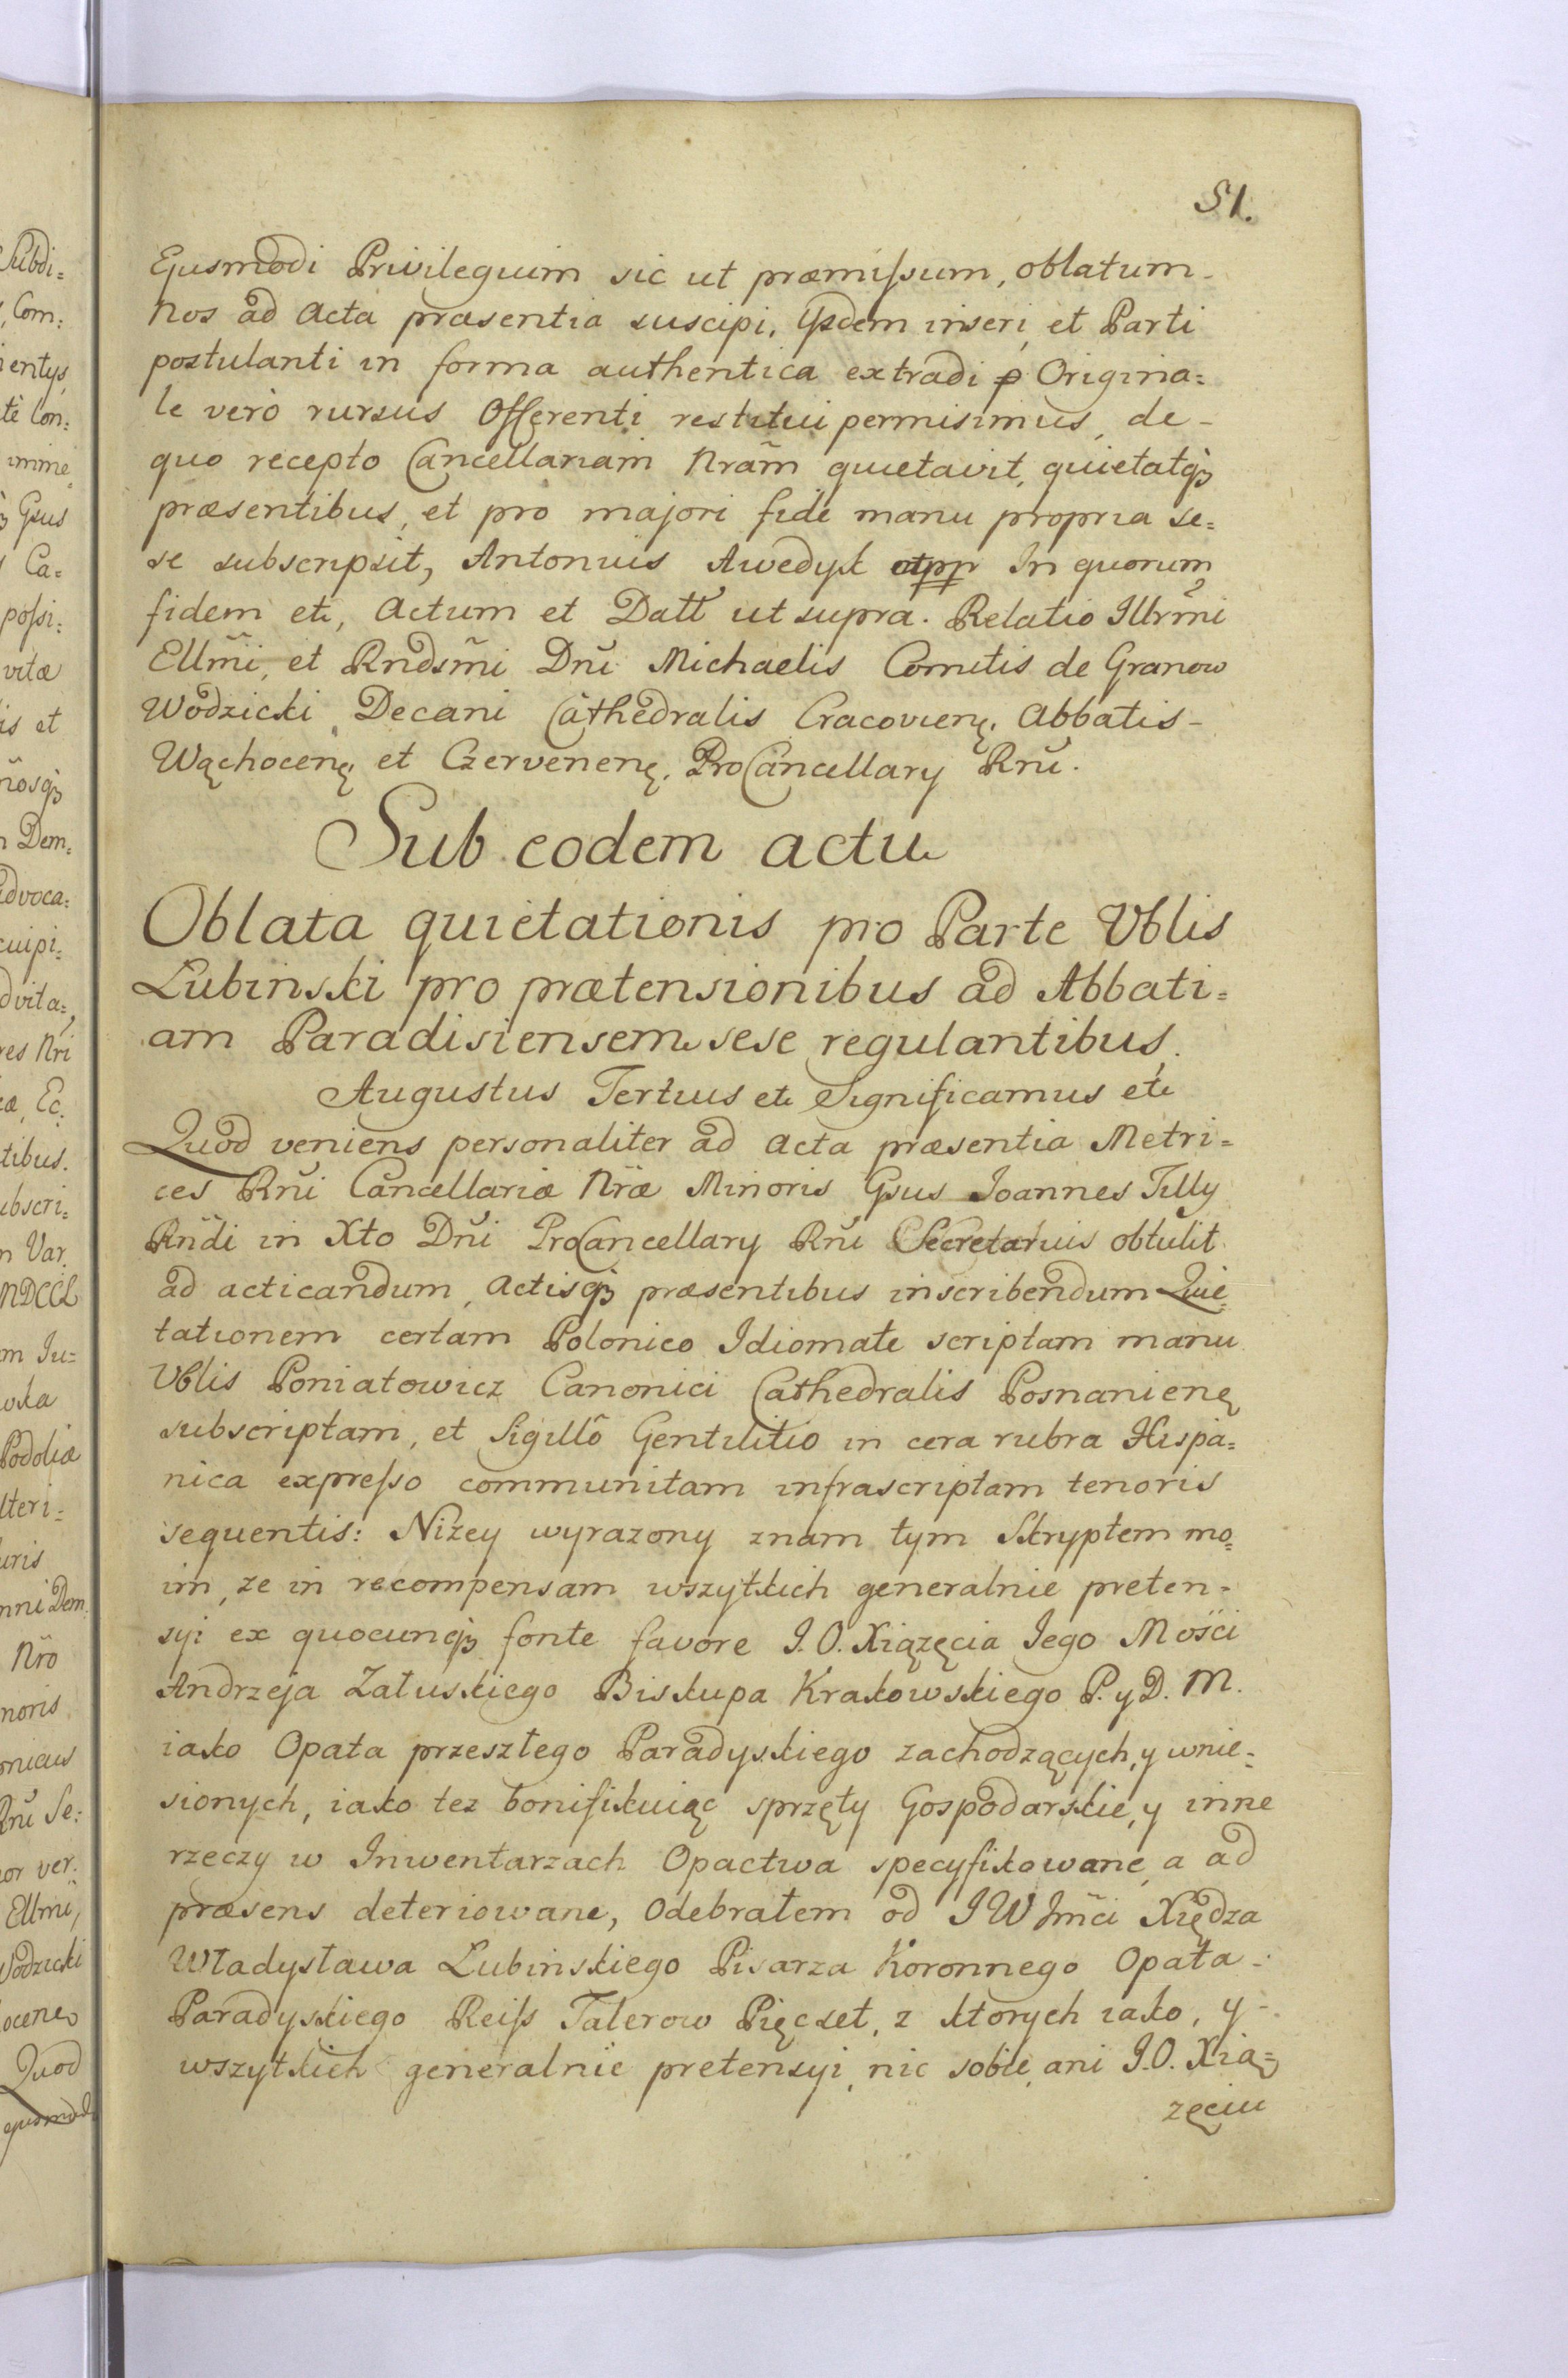 51.
Ejusmodi Privilegium sic ut præmissum, oblatum
Nos ad Acta præsentia suscipi, Ijsdem inseri, et Parti
postulanti in forma authentica extradi Origina=
le verò rursus Offerenti restitui permisimus, de
quo recepto Cancellariam Nram̃ quietavit, quietatqȝ
præsentibus, et pro majori fide manu propria se=
se subscripsit, Antonius Awedyk mpp In quorum
fidem etc, Actum et Datt ut supra. Relatio Illrm̃i
Ellm̃i, et Rndsm̃i Dnĩ Michaelis Comitis de Granow
Wodzicki Decani Cathedralis Cracovienę. Abbatis
Wąchocenę et Czervenenę. ProCancellary Rnũ.
Sub eodem actu
Oblata quietationis pro Parte Vblis
Łubinski pro prætensionibus ad Abbati=
am Paradisiensem sese regulantibus.
Augustus Tertius etc Significamus etc
Quod veniens personaliter ad Acta præsentia Metri=
ces Rnĩ Cancellariæ Nræ Minoris Gsus Joannes Tilly
Rñdi in Xto Dnĩ ProCancellary Rnĩ Secretarius obtulit
ad acticandum, Actisqȝ præsentibus inscribendum Quie=
tationem certam Polonico Idiomate scriptam manu
Vblis Poniatowicz Canonici Cathedralis Posnanienę
subscriptam, et Sigillô Gentilitio in cera rubra Hispa=
nica expresso communitam infrascriptam tenoris
sequentis: Nizey wyrazony znam tym Skryptem mo=
im, ze in recompensam wszytkich generalnie preten=
syi ex quocunqȝ fonte favore J.O. Xiązęcia Jego Mości
Andrzeja Załuskiego Biskupa Krakowskiego P. y D. M.
iako Opata przeszłego Paradyskiego zachodzących, y wnie=
sionych, iako tez bonifikuiąc sprzęty Gospodarskie, y inne
rzeczy w Inwentarzach Opactwa specyfikowane, a ad
præsens deteriowane, Odebrałem od JW Jmći Xiędza
Władysława Łubinskiego Pisarza Koronnego Opata
Paradyskiego Reiss Talerow Pięcset, z ktorych iako, y
wszytkich generalnie pretensyi, nic sobie, ani J.O. Xią=
zęciu